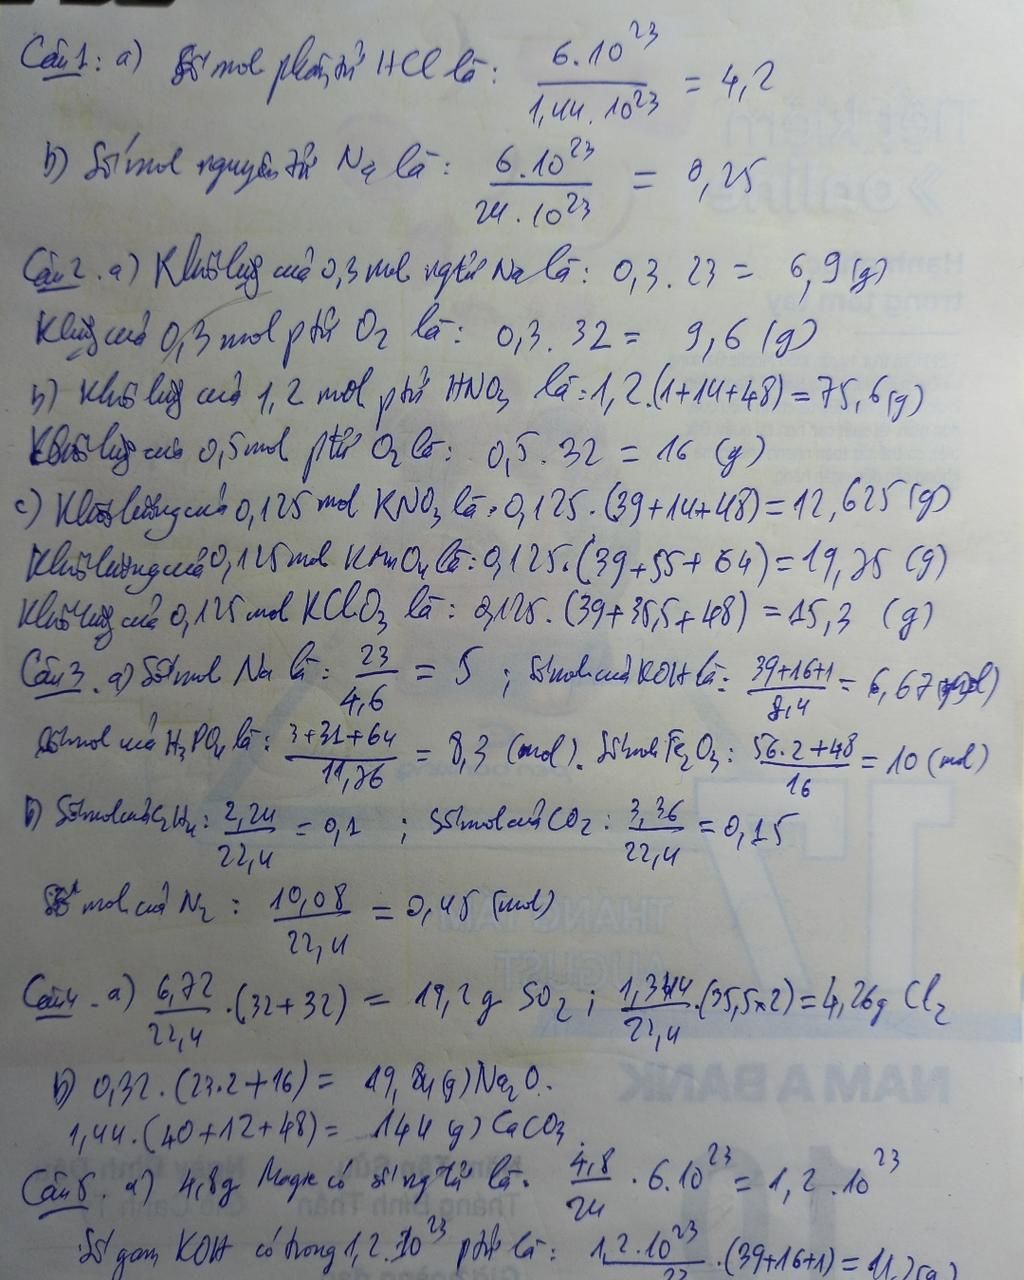 Câu 1: a) Số mol phân tử HCl là: 6.10²³ / 1,44.10²³ = 4,2
b) Số mol nguyên tử Na là: 6.10²³ / 24.10²³ = 0,25
Câu 2. a) Khối lượng của 0,3 mol ngtử Na là: 0,3.23 = 6,9 (g)
Klượng của 0,3 mol ptử O₂ là: 0,3.32 = 9,6 (g)
b) Khối lượng của 1,2 mol ptử HNO₃ là: 1,2.(1+14+48) = 75,6 (g)
Khối lượng của 0,5 mol ptử O₂ là: 0,5.32 = 16 (g)
c) Khối lượng của 0,125 mol KNO₃ là: 0,125.(39+14+48) = 12,625 (g)
Khối lượng của 0,125 mol KMnO₄ là: 0,125.(39+55+64) = 19,75 (g)
Khối lượng của 0,125 mol KClO₃ là: 0,125.(39+35,5+48) = 15,3 (g)
Câu 3. a) Số mol Na là: 23 / 4,6 = 5 ; Số mol của KOH là: 39+16+1 / 8,4 = 6,67 (mol)
Số mol của H₃PO₄ là: 3+31+64 / 11,76 = 8,3 (mol). Số mol Fe₂O₃: 56.2+48 / 16 = 10 (mol)
b) Số mol của C₂H₄: 2,24 / 22,4 = 0,1 ; Số mol của CO₂: 3,36 / 22,4 = 0,15
Số mol của N₂: 10,08 / 22,4 = 0,45 (mol)
Câu 4. a) 6,72 / 22,4 .(32+32) = 19,2g SO₂ ; 1,344 / 22,4 .(35,5×2) = 4,26g Cl₂
b) 0,32.(23.2+16) = 19,84 (g) Na₂O.
1,44.(40+12+48) = 144 (g) CaCO₃.
Câu 5. a) 4,8g Magie có số ng tử là. 4,8 / 24 . 6.10²³ = 1,2.10²³
Số gam KOH có trong 1,2.10²³ ptử là: 1,2.10²³ .(39+16+1) = 11,2 (g)